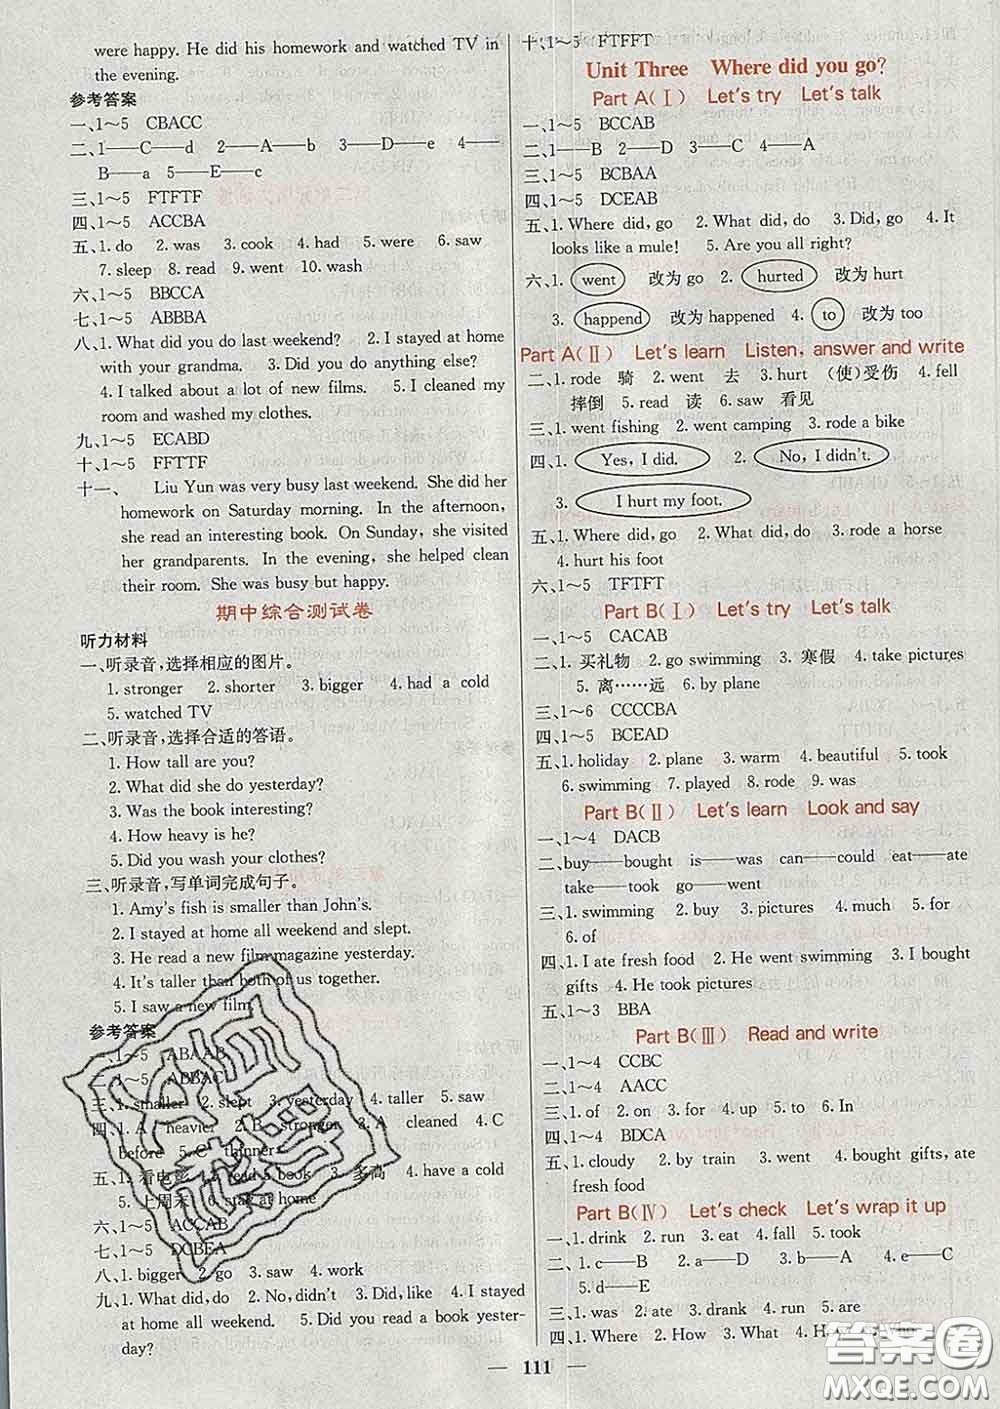 were happy. He did his homework and watched TV in
the evening.
参考答案
一、1～5 CBACC
二、1——C——d 2——A——b 3——D——e 4——
B——a 5——E——c
三、1～5 FTFTF
四、1～5 ACCBA
五、1. do 2. was 3. cook 4. had 5. were 6. saw
7. sleep 8. read 9. went 10. wash
六、1～5 BBCCA
七、1～5 ABBBA
八、1. What did you do last weekend? 2. I stayed at home
with your grandma. 3. Did you do anything else?
4. I talked about a lot of new films. 5. I cleaned my
room and washed my clothes.
九、1～5 ECABD
十、1～5 FFTTF
十一、 Liu Yun was very busy last weekend. She did her
homework on Saturday morning. In the afternoon,
she read an interesting book. On Sunday, she visited
her grandparents. In the evening, she helped clean
their room. She was busy but happy.
期中综合测试卷
听力材料
一、听录音,选择相应的图片。
1. stronger 2. shorter 3. bigger 4. had a cold
5. watched TV
二、听录音,选择合适的答语。
1. How tall are you?
2. What did she do yesterday?
3. Was the book interesting?
4. How heavy is he?
5. Did you wash your clothes?
三、听录音,写单词完成句子。
1. Amy's fish is smaller than John's.
2. I stayed at home all weekend and slept.
3. He read a new film magazine yesterday.
4. It's taller than both of us together.
5. I saw a new film.
参考答案
一、1～5 ABAAB
二、1～5 ABBAC
三、1. smaller 2. slept 3. yesterday 4. taller 5. saw
四、1. A heavier 2. B stronger 3. A cleaned 4. C
before 5. C thinner
五、1. 看电影 2. read a book 3. 多高 4. have a cold
5. 上周末 6. stay at home
六、1～5 ACCAB
七、1～5 DCBEA
八、1. bigger 2. go 3. saw 4. work
九、1. What did, do 2. No, didn't 3. Did, like 4. I stayed
at home all weekend. 5. Did you read a book yester-
day?
十、1～5 FTFFT
Unit Three Where did you go?
Part A(Ⅰ) Let's try Let's talk
一、1～5 BCCAB
二、1——B 2——D 3——C 4——A
三、1～5 BCBAA
四、1～5 DCEAB
五、1. Where did, go 2. What did, do 3. Did, go 4. It
looks like a mule! 5. Are you all right?
六、1. went 改为 go 2. hurted 改为 hurt
3. happend 改为 happened 4. to 改为 too
Part A(Ⅱ) Let's learn Listen, answer and write
二、1. rode 骑 2. went 去 3. hurt (使)受伤 4. fell
摔倒 5. read 读 6. saw 看见
三、1. went fishing 2. went camping 3. rode a bike
四、1. Yes, I did. 2. No, I didn't.
3. I hurt my foot.
五、1. Where did, go 2. What did, do 3. rode a horse
4. hurt his foot
六、1～5 TFTFT
Part B(Ⅰ) Let's try Let's talk
一、1～5 CACAB
二、1. 买礼物 2. go swimming 3. 寒假 4. take pictures
5. 离……远 6. by plane
三、1～6 CCCCBA
四、1～5 BCEAD
五、1. holiday 2. plane 3. warm 4. beautiful 5. took
6. swimming 7. played 8. rode 9. was
Part B(Ⅱ) Let's learn Look and say
一、1～4 DACB
二、buy——bought is——was can——could eat——ate
take——took go——went
三、1. swimming 2. buy 3. pictures 4. much 5. for
6. of
四、1. I ate fresh food 2. He went swimming 3. I bought
gifts 4. He took pictures
五、1～3 BBA
Part B(Ⅲ) Read and write
一、1～4 CCBC
二、1～4 AACC
三、1. of 2. on 3. for 4. up 5. to 6. In
四、1～4 BDCA
五、1. cloudy 2. by train 3. went 4. bought gifts, ate
fresh food
Part B(Ⅳ) Let's check Let's wrap it up
一、1. drink 2. run 3. eat 4. fall 5. took
二、1. c——B 2. a——D 3. b——A 4. e——C
5. d——E
三、1. was 2. ate 3. drank 4. run 5. are
四、1. Where 2. How 3. What 4.
111
答案圈
MXQE.COM